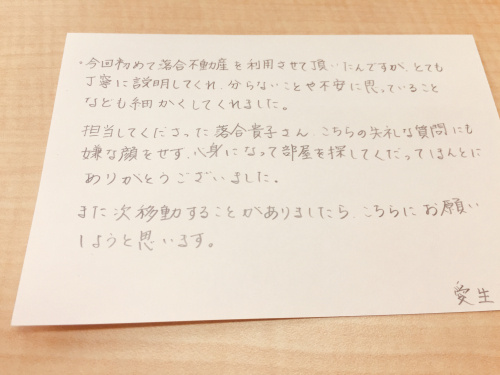 ・今回初めて落合不動産を利用させて頂いたんですが、とても
丁寧に説明してくれ、分らないことや不安に思っていること
なども細かくしてくれました。
担当してくださった落合貴子さん、こちらの失礼な質問にも
嫌な顔をせず、心身になって部屋を探してくだってほんとに
ありがとうございました。
また次移動することがありましたら、こちらにお願い
しようと思います。
愛生